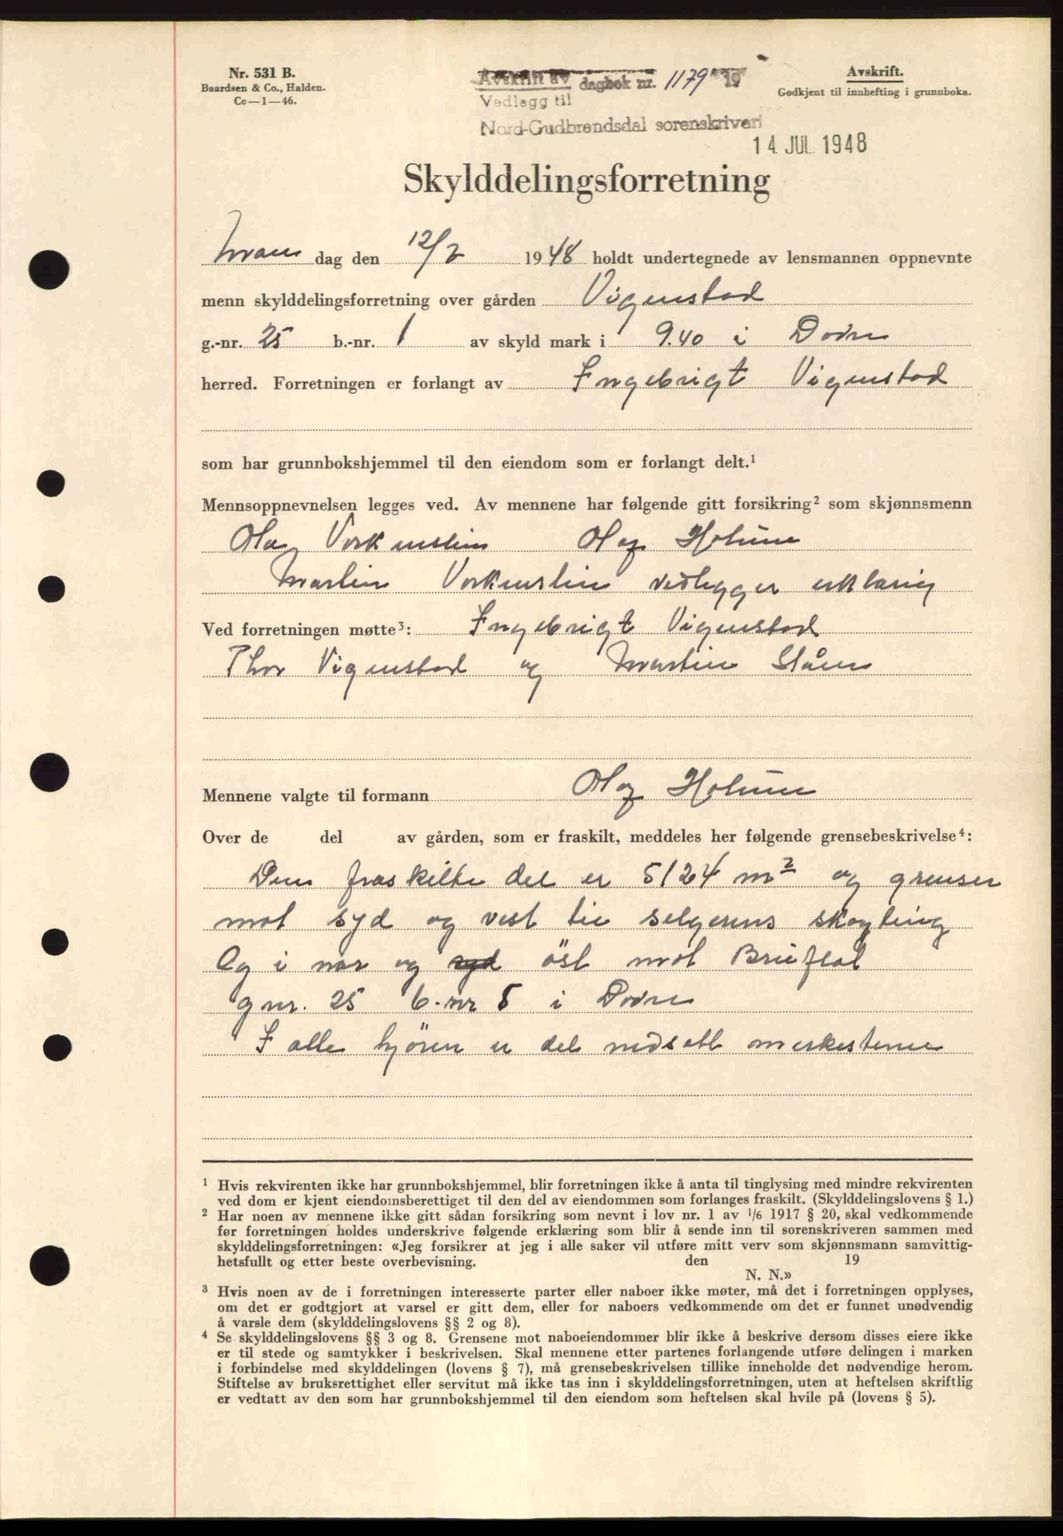 Nr. 531 B.
Baardsen & Co., Halden.
Cc—1—46.
Avskrift av dagbok nr. 1179 19
Vedlegg til
Nord-Gudbrandsdal sorenskriveri
14 JUL 1948
Avskrift.
Godkjent til innhefting i grunnboka.
Skylddelingsforretning
dag den 12/2 1948 holdt undertegnede av lensmannen oppnevnte
menn skylddelingsforretning over gården Vigenstad
g.-nr. 25 b.-nr. 1 av skyld mark i 9.40 i Dovre
herred. Forretningen er forlangt av Engebrigt Vigenstad
som har grunnbokshjemmel til den eiendom som er forlangt delt.¹
Mennsoppnevnelsen legges ved. Av mennene har følgende gitt forsikring² som skjønnsmenn
Ola Vorkinslin Olaf Holum
Martin Vorkinslin vedlegger erklæring
Ved forretningen møtte³: Engebrigt Vigenstad
Thor Vigenstad og Martin Slåen
Mennene valgte til formann Olaf Holum
Over de del av gården, som er fraskilt, meddeles her følgende grensebeskrivelse⁴:
Den fraskilte del er 5124 m² og grenser
mot syd og vest til selgerens skogteig
Og i nor og syd öst mot Bruflat
gnr. 25 b.nr 5 i Dovre
I alle hjörner er det nedsatt merkestener
¹ Hvis rekvirenten ikke har grunnbokshjemmel, blir forretningen ikke å anta til tinglysing med mindre rekvirenten
ved dom er kjent eiendomsberettiget til den del av eiendommen som forlanges fraskilt. (Skylddelingslovens § 1.)
² Har noen av mennene ikke gitt sådan forsikring som nevnt i lov nr. 1 av 1/6 1917 § 20, skal vedkommende
før forretningen holdes underskrive følgende erklæring som blir å sende inn til sorenskriveren sammen med
skylddelingsforretningen: «Jeg forsikrer at jeg i alle saker vil utføre mitt verv som skjønnsmann samvittig-
hetsfullt og etter beste overbevisning. den 19
N. N.»
³ Hvis noen av de i forretningen interesserte parter eller naboer ikke møter, må det i forretningen opplyses,
om det er godtgjort at varsel er gitt dem, eller for naboers vedkommende om det er funnet unødvendig
å varsle dem (skylddelingslovens §§ 2 og 8).
⁴ Se skylddelingslovens §§ 3 og 8. Grensene mot naboeiendommer blir ikke å beskrive dersom disses eiere ikke
er til stede og samtykker i beskrivelsen. Skal mennene etter partenes forlangende utføre delingen i marken
i forbindelse med skylddelingen (lovens § 7), må grensebeskrivelsen tillike inneholde det nødvendige herom.
Stiftelse av bruksrettighet eller servitut må ikke tas inn i skylddelingsforretningen, uten at heftelsen skriftlig
er vedtatt av den som har grunnbokshjemmel til den eiendom som heftelsen skal hvile på (lovens § 5).